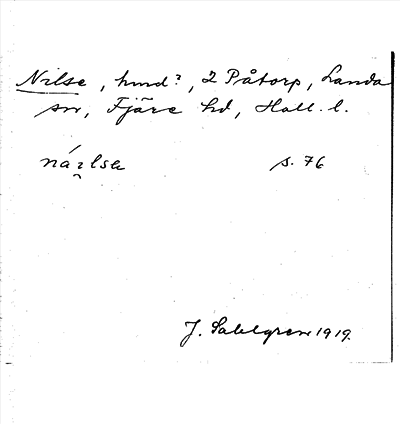 Nilse, hmd?, 2 Påtorp, Landa
sn, Fjäre hd, Hall. l.
s. 76
J. Sahlgren 1919.